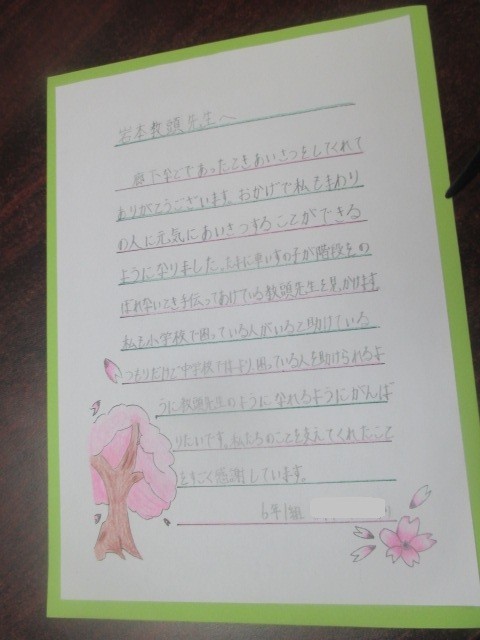 岩本教頭先生へ
廊下などであったときあいさつをしてくれて
ありがとうございます。おかげで私もまわり
の人に元気にあいさつすることができる
ようになりました。たまに車いすの子が階段をの
ぼれないとき手伝ってあげている教頭先生を見かけます。
私も小学校で困っている人がいると助けている
つもりだけど中学校ではより、困っている人を助けられるよ
うに教頭先生のようになれるようにがんば
りたいです。私たちのことを支えてくれたこと
をすごく感謝しています。
6年1組